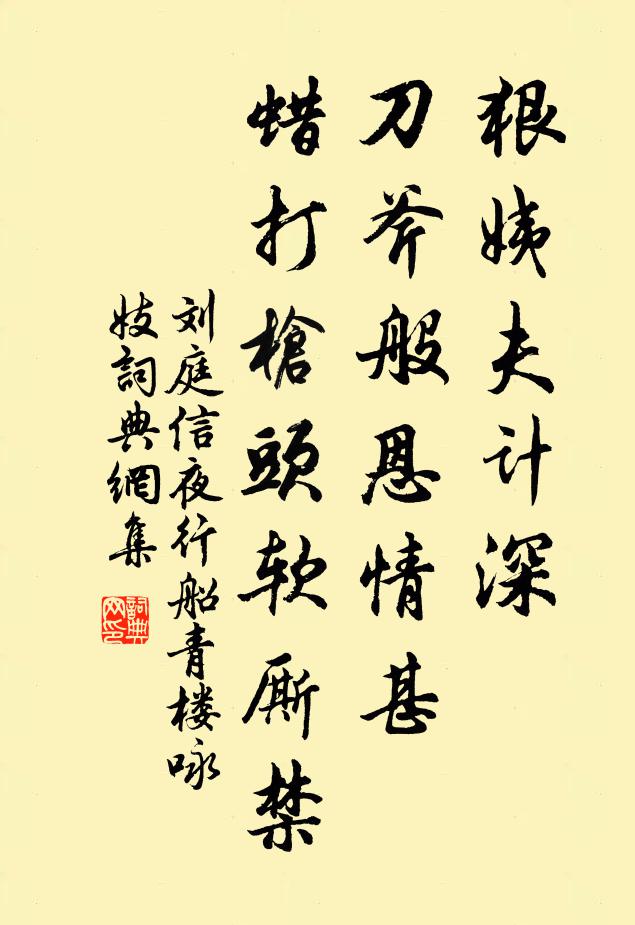 狠姨夫计深
刀斧般恩情甚
蜡打槍頭软厮禁
刘庭信夜行船青楼咏
妓詞典網集
詞典网印